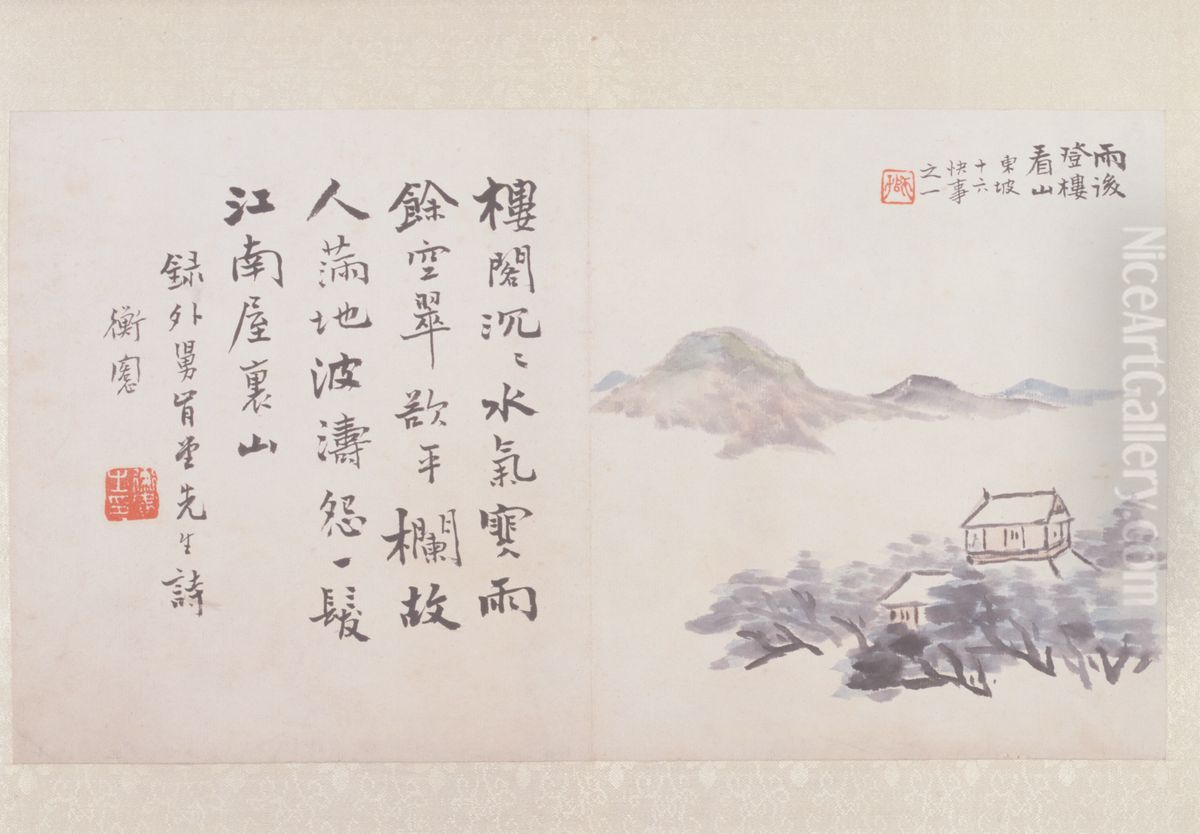 雨後
登樓
看山
東坡
十六
快事
之一
樓閣沉〻水氣寒雨
餘空翠欲平欄故
人滿地波濤怨一髮
江南屋裏山
録外舅肯堂先生詩
衡愙
NiceArtGallery.com